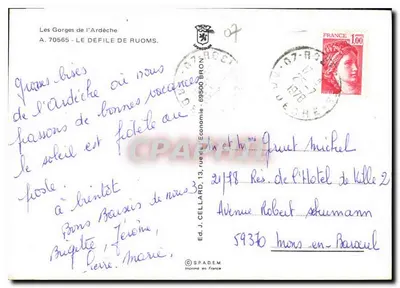 Les Gorges de l'Ardèche
A. 70565 - LE DEFILE DE RUOMS.
07
Grosses bises
de l'Ardèche où nous
passons de bonnes vacances
le soleil est fidèle au
poste.
à bientôt
Bons Baisers de nous 3
Brigitte, Jérôme,
Pierre-Marie,
Ed. J. CELLARD, 13, rue de l'Economie - 69500 BRON
© SPADEM
Imprimé en France
FRANCE
1,00
07-RUOMS
ARDECHE
1978
Cartepostale
Mr et Mme Michel
Rés. de l'Hôtel de Ville 2
Avenue Robert Schumann
59370 Mons-en-Baroeul